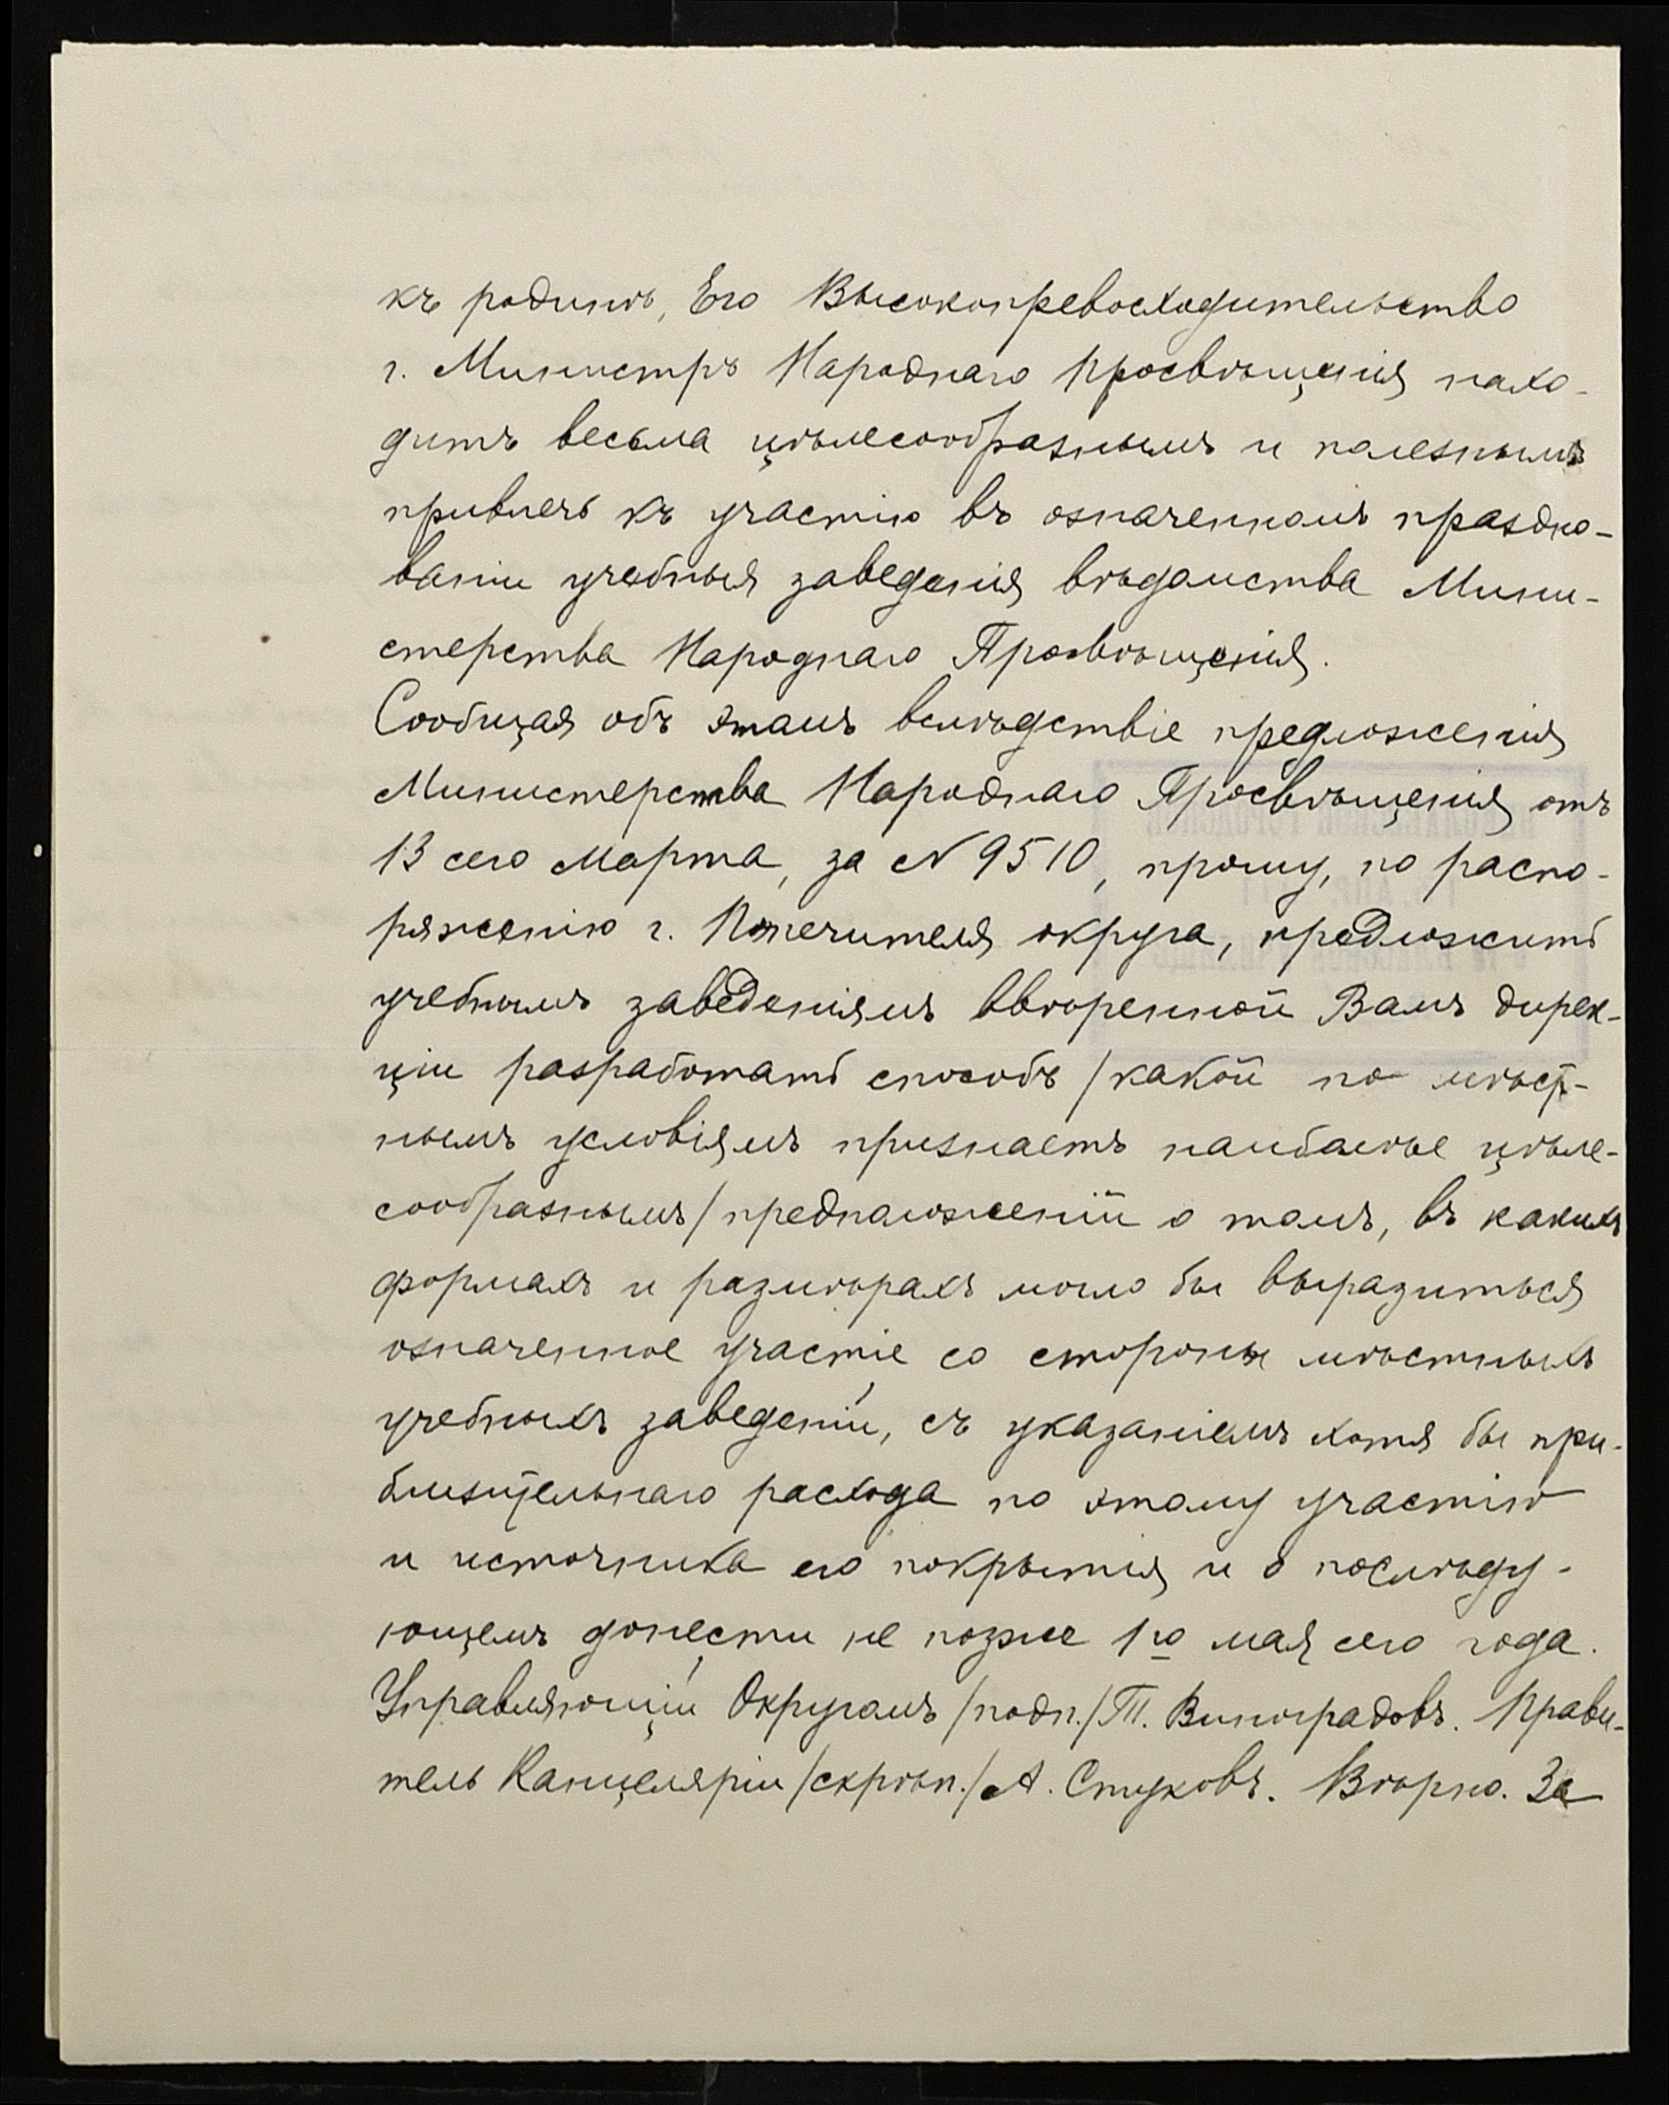 къ родинѣ, Его Высокопревосходительство
г. Министръ Народнаго Просвѣщенія нахо-
дитъ весьма цѣлесообразнымъ и полезнымъ
привлечь къ участію въ означенномъ праздно-
ваніи учебныя заведенія вѣдомства Мини-
стерства Народнаго Просвѣщенія.
Сообщая объ этомъ вслѣдствіе предложенія
Министерства Народнаго Просвѣщенія отъ
13 сего Марта, за N 9510, прошу, по распо-
ряженію г. Попечителя округа, предложить
учебнымъ заведеніямъ ввѣренной Вамъ дирек-
ціи разработать способъ /какой по мѣст-
нымъ условіямъ признаетъ наиболѣе цѣле-
сообразнымъ/ предположеній о томъ, въ какихъ
формахъ и размѣрахъ могло бы выразиться
означенное участіе со стороны мѣстныхъ
учебныхъ заведеній, съ указаніемъ хотя бы при-
близительнаго расхода по этому участію
и источника его покрытія и о послѣду-
ющемъ донести не позже 1го мая сего года.
Управляющій Округомъ /подп./ П. Виноградовъ. Прави-
тель Канцеляріи /скрѣп./ А. Стуковъ. Вѣрно. За